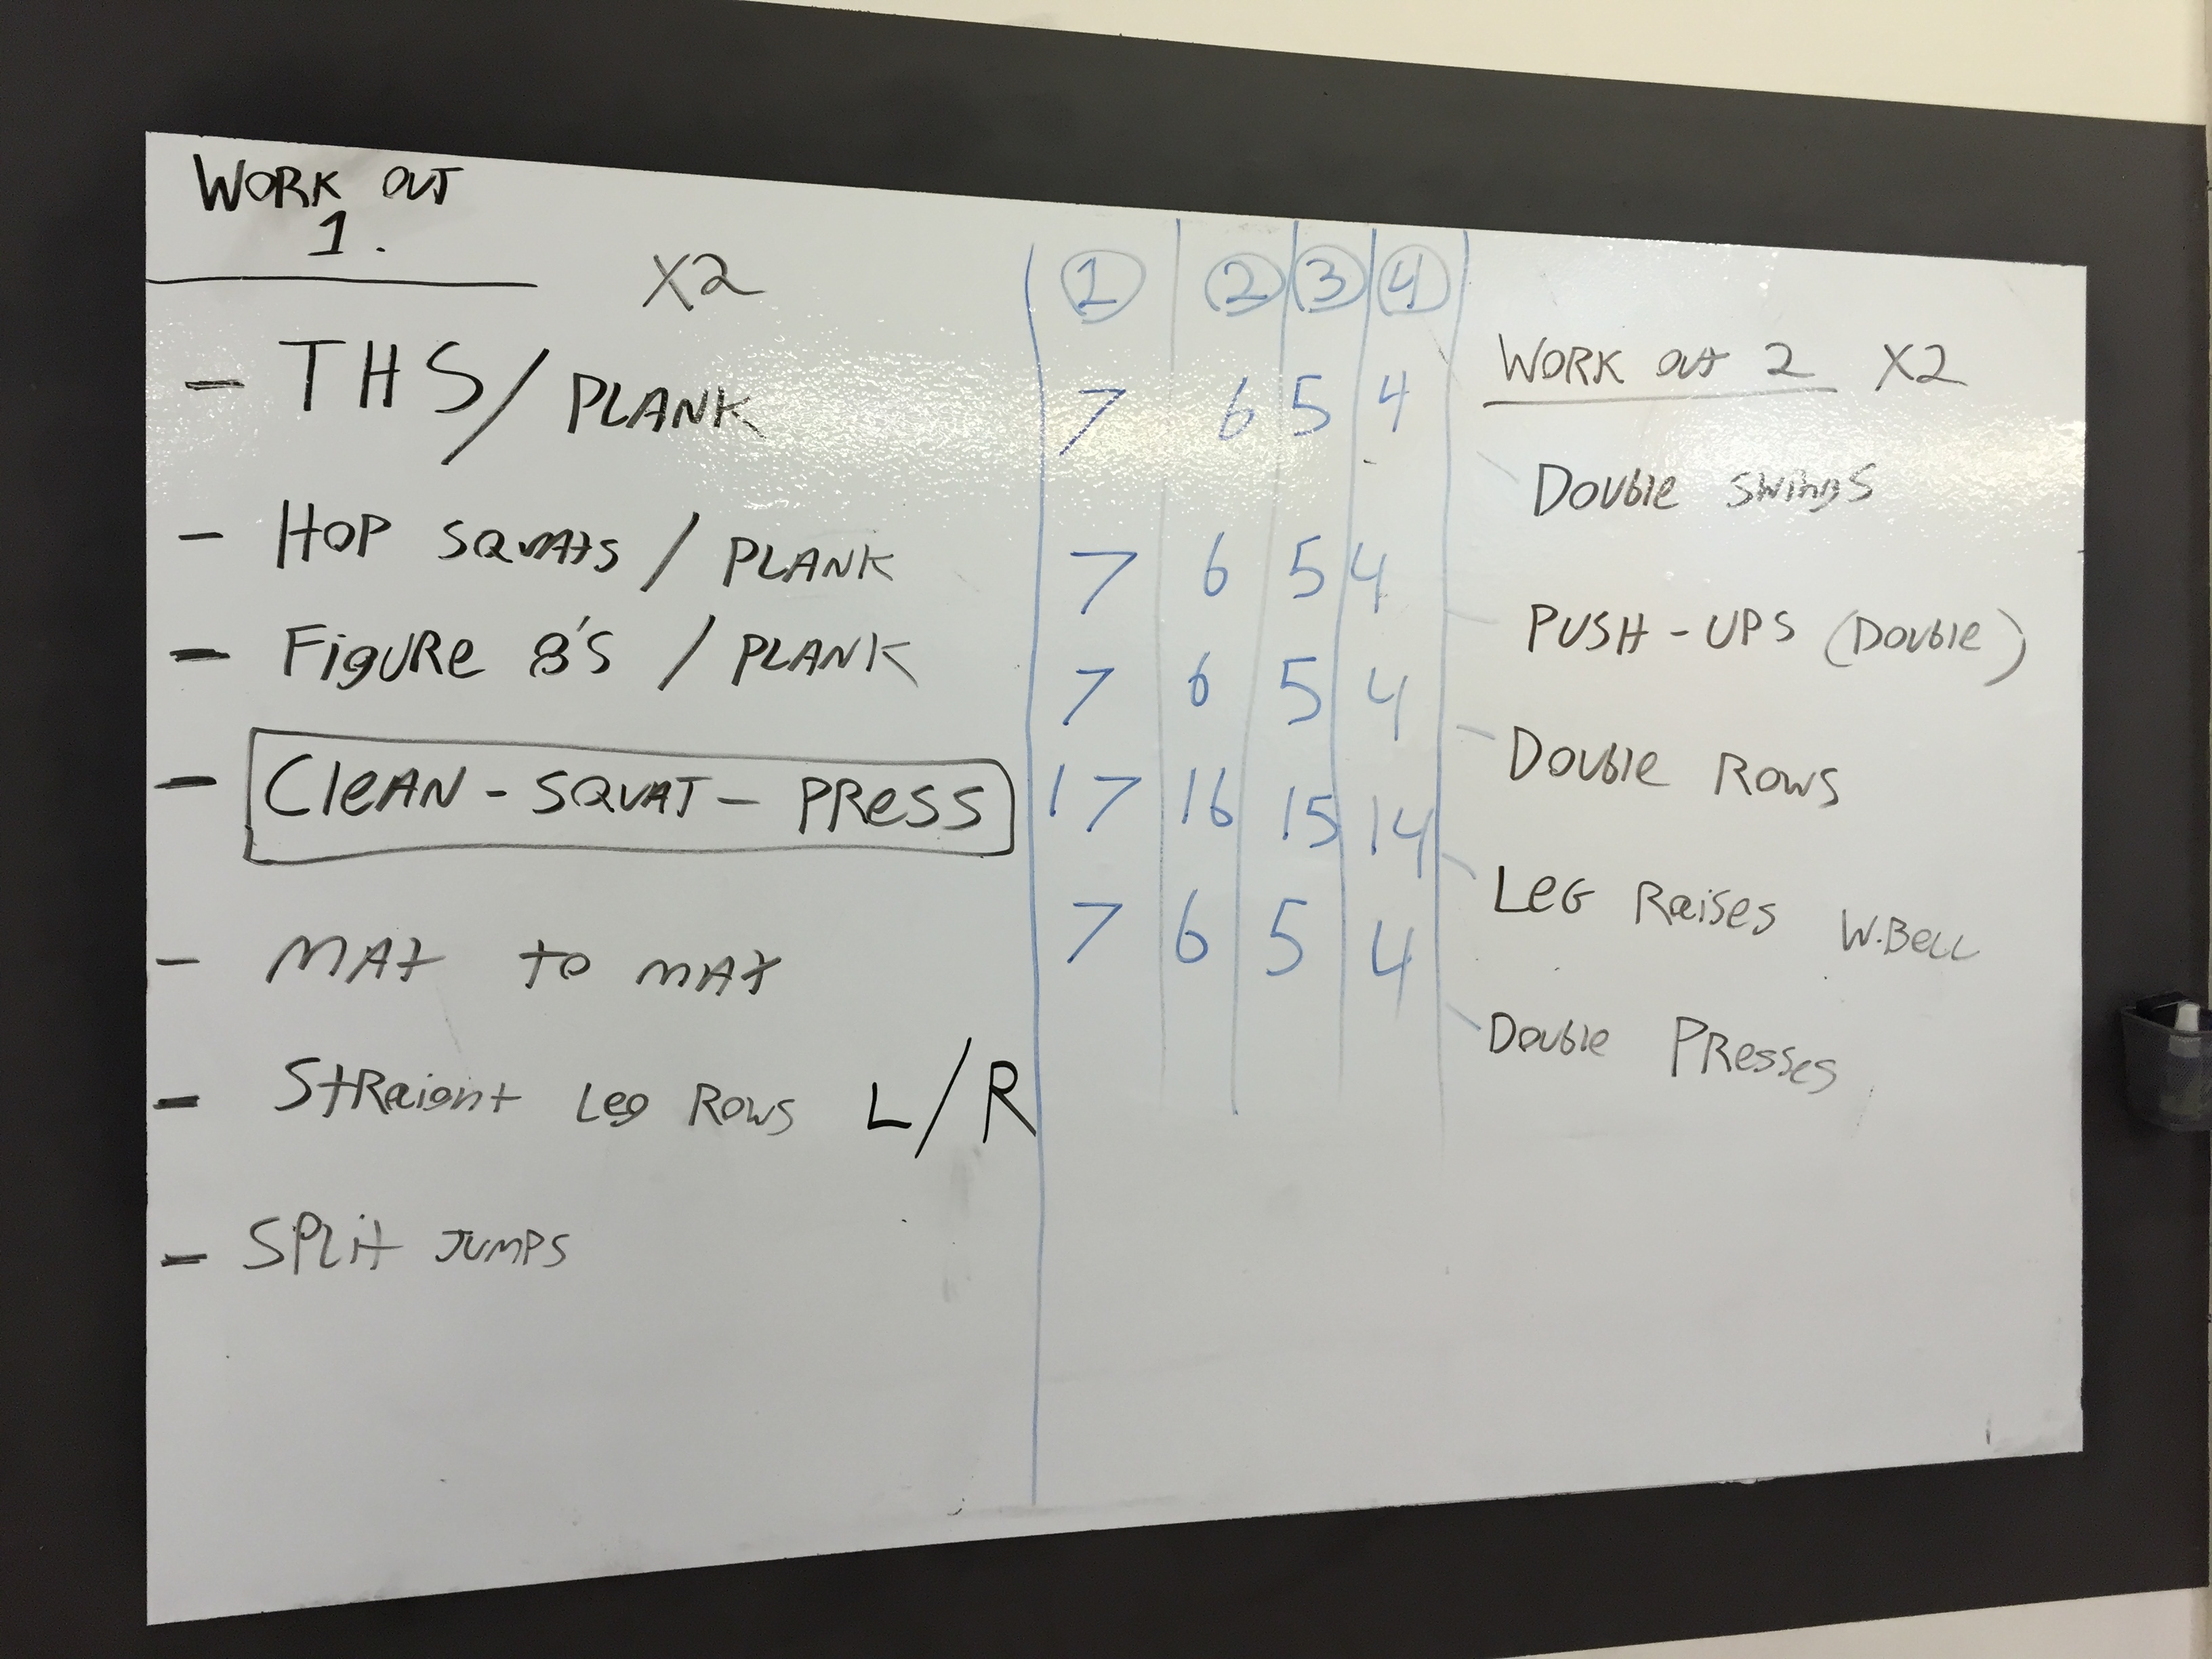 WORK OUT
1.
X2
- THS / PLANK
- HOP SQUATS / PLANK
- FiguRe 8'S / PLANK
- CleAN - SQUAT - PRESS
- MAt to MAt
- StRaight Leg Rows L/R
- SPlit JUMPS
1 2 3 4
7 6 5 4
7 6 5 4
7 6 5 4
17 16 15 14
7 6 5 4
WORK OUT 2 X2
- Double SWINGS
- PUSH-UPS (Double)
- Double Rows
- LEG Raises W.BELL
- Double PResses